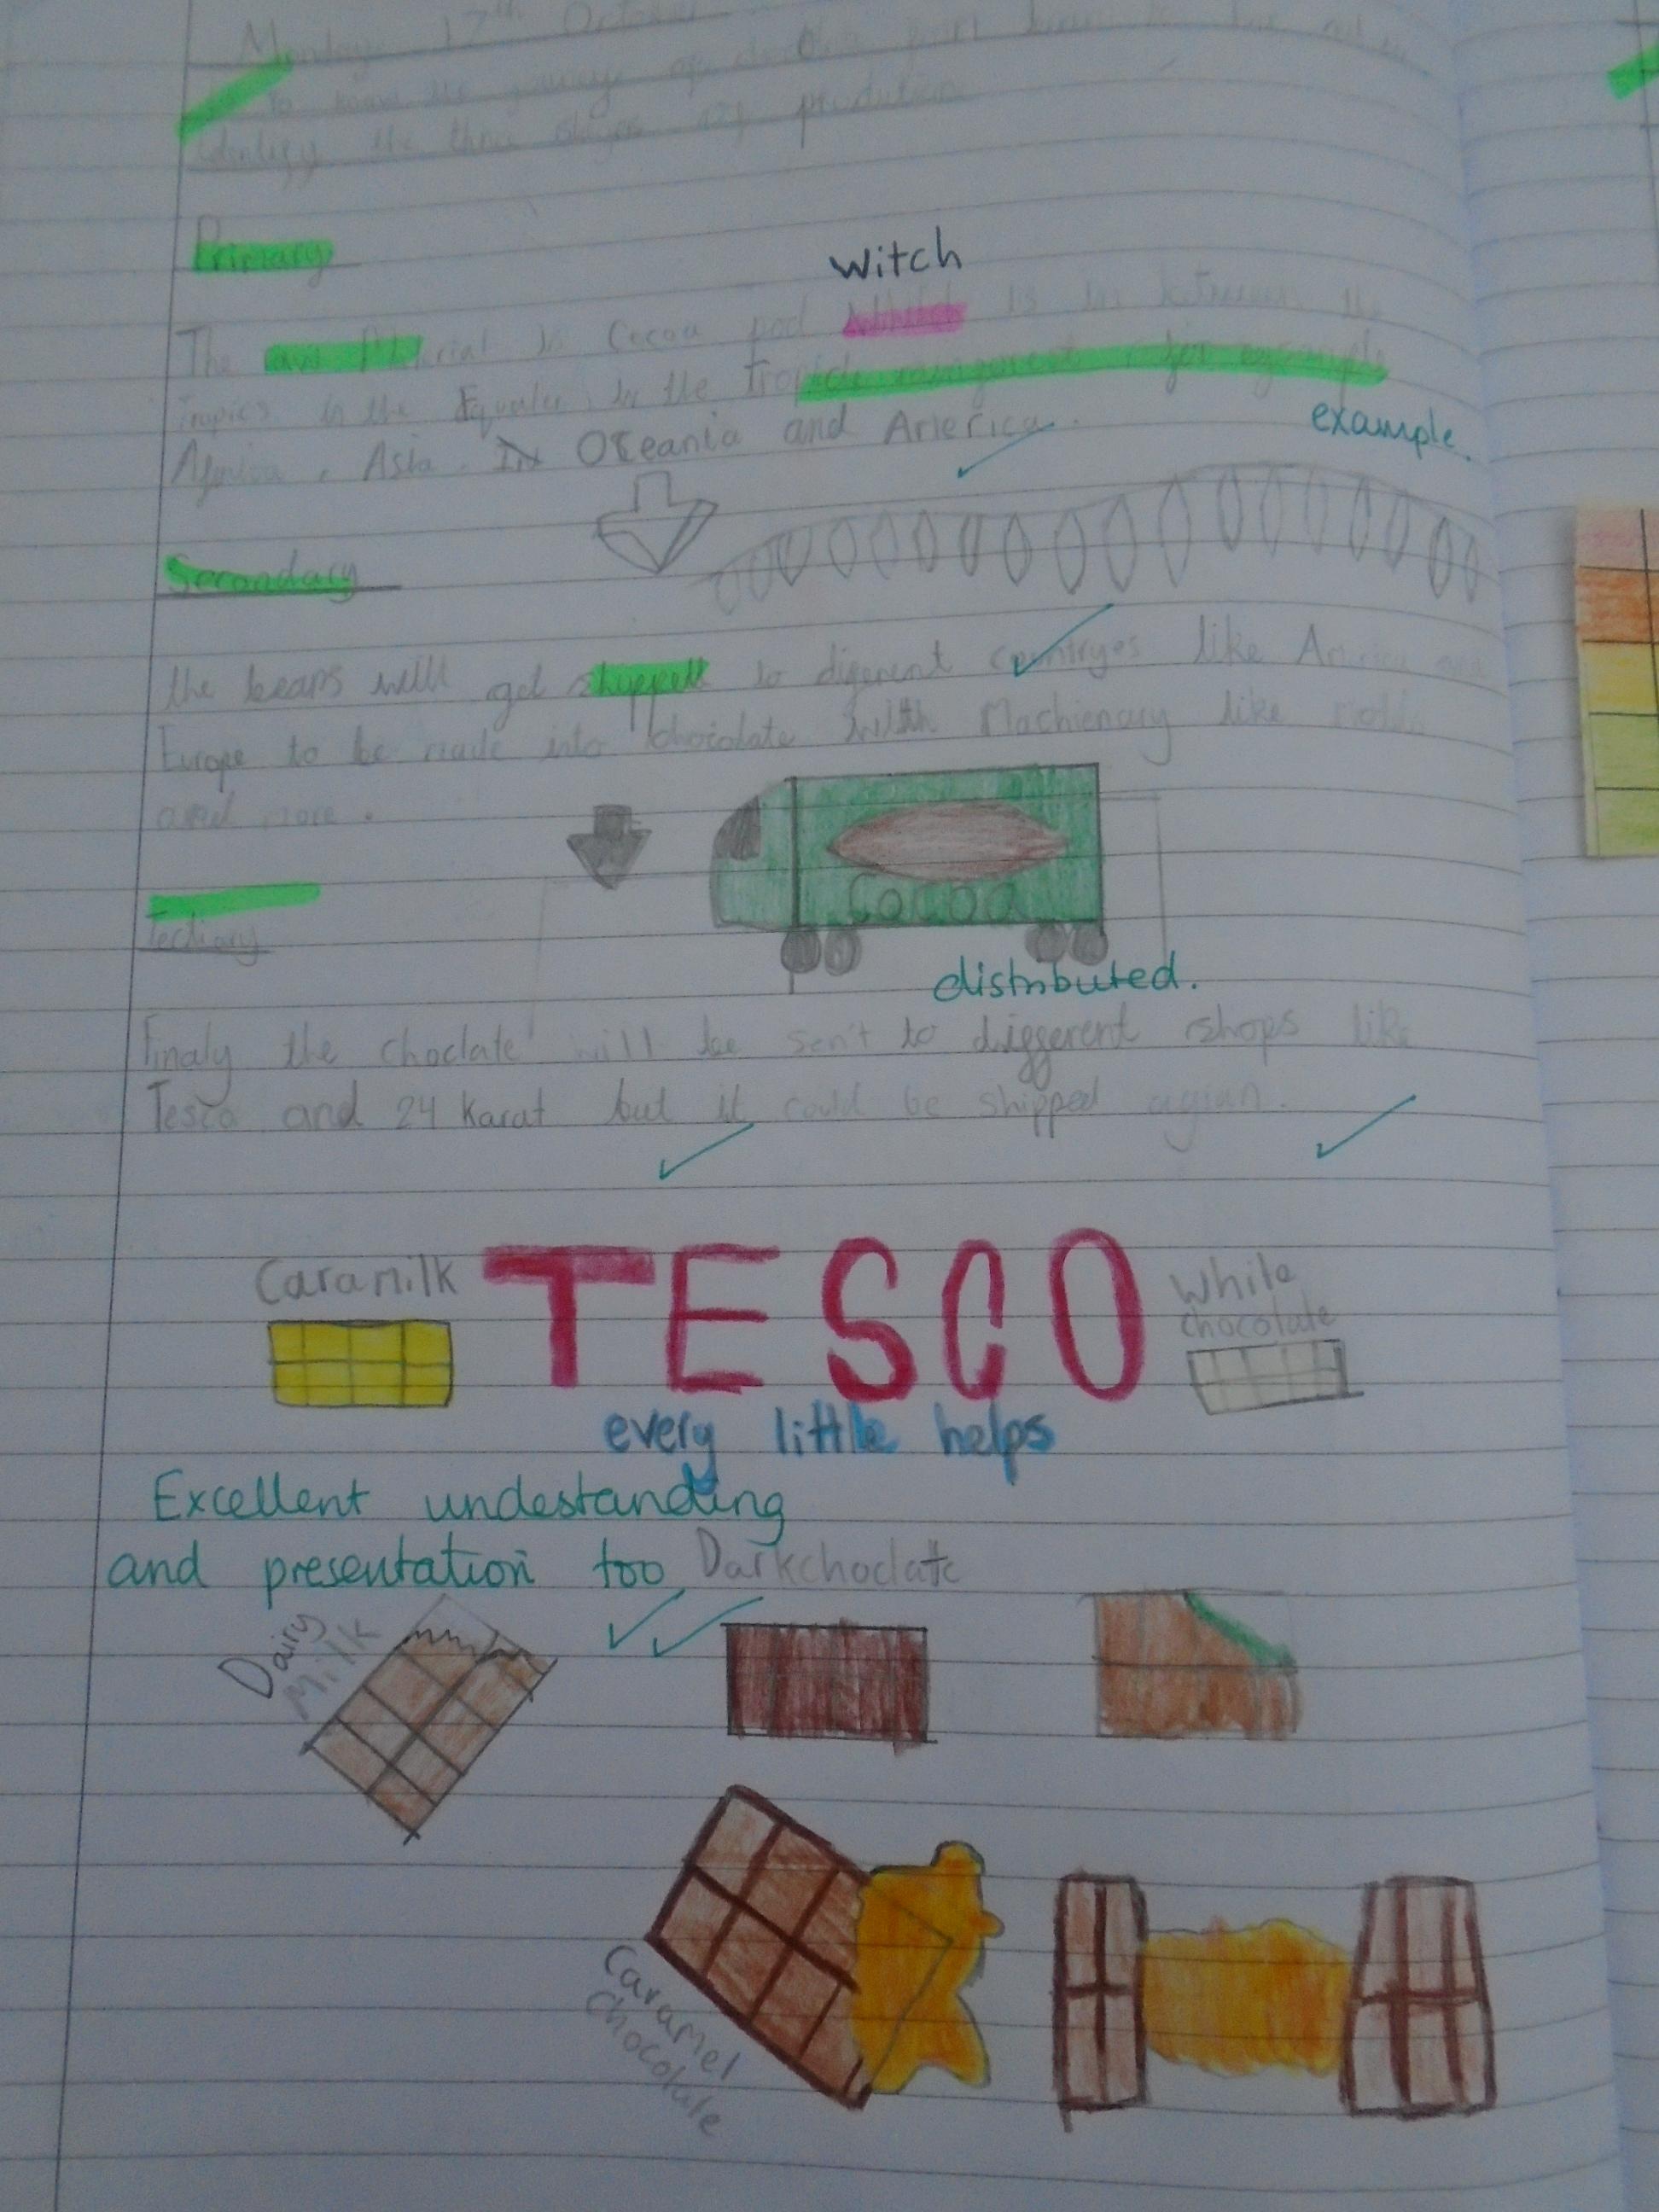 Monday 17th October
To know the
identify the three stages of production
Primary
witch
The raw Material is Cocoa pod which is in between the
Tropics in the Equator. In the Tropical for example
example.
Africa, Asia, In Oceania and America.
Secondary
the beans will get shipped to diferent countryes like America and
Europe to be made into chocolate with Machienary like
and more.
Cocoa
Tertiary
distributed.
Finaly the choclate will be sen't to different shops like
Tesco and 24 Karat but it could be shipped agian.
Caramilk
TESCO
White
chocolate
every little helps
Excellent undestanding
and presentation too
Darkchoclate
Dairy
Milk
Caramel
Chocolate